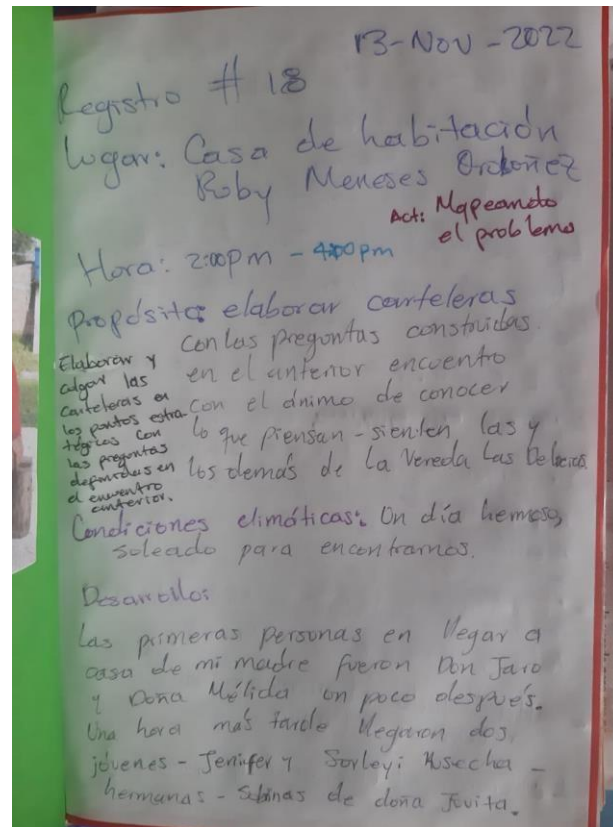 13-Nov-2022
Registro # 18
Lugar: Casa de habitación
Roby Meneses Ordoñez
Act: Mapeando
el problema
Hora: 2:00pm - 4:00pm
Propósito: elaborar carteleras
con las preguntas construidas
en el anterior encuentro
con el ánimo de conocer
lo que piensan - sienten, las y
los demás de la Vereda Las Delicias
Elaborar y
colgar las
carteleras en
los puntos estra-
tégicos con
las preguntas
definidas en
el encuentro
anterior.
Condiciones climáticas: Un día hermoso,
soleado para encontrarnos.
Desarrollo:
Las primeras personas en llegar a
casa de mi madre fueron Don Jaro
y Doña Mélida un poco después.
Una hora más tarde llegaron dos
jóvenes - Jenifer y Sorleyi -
hermanas - Sobinas de doña Jovita.